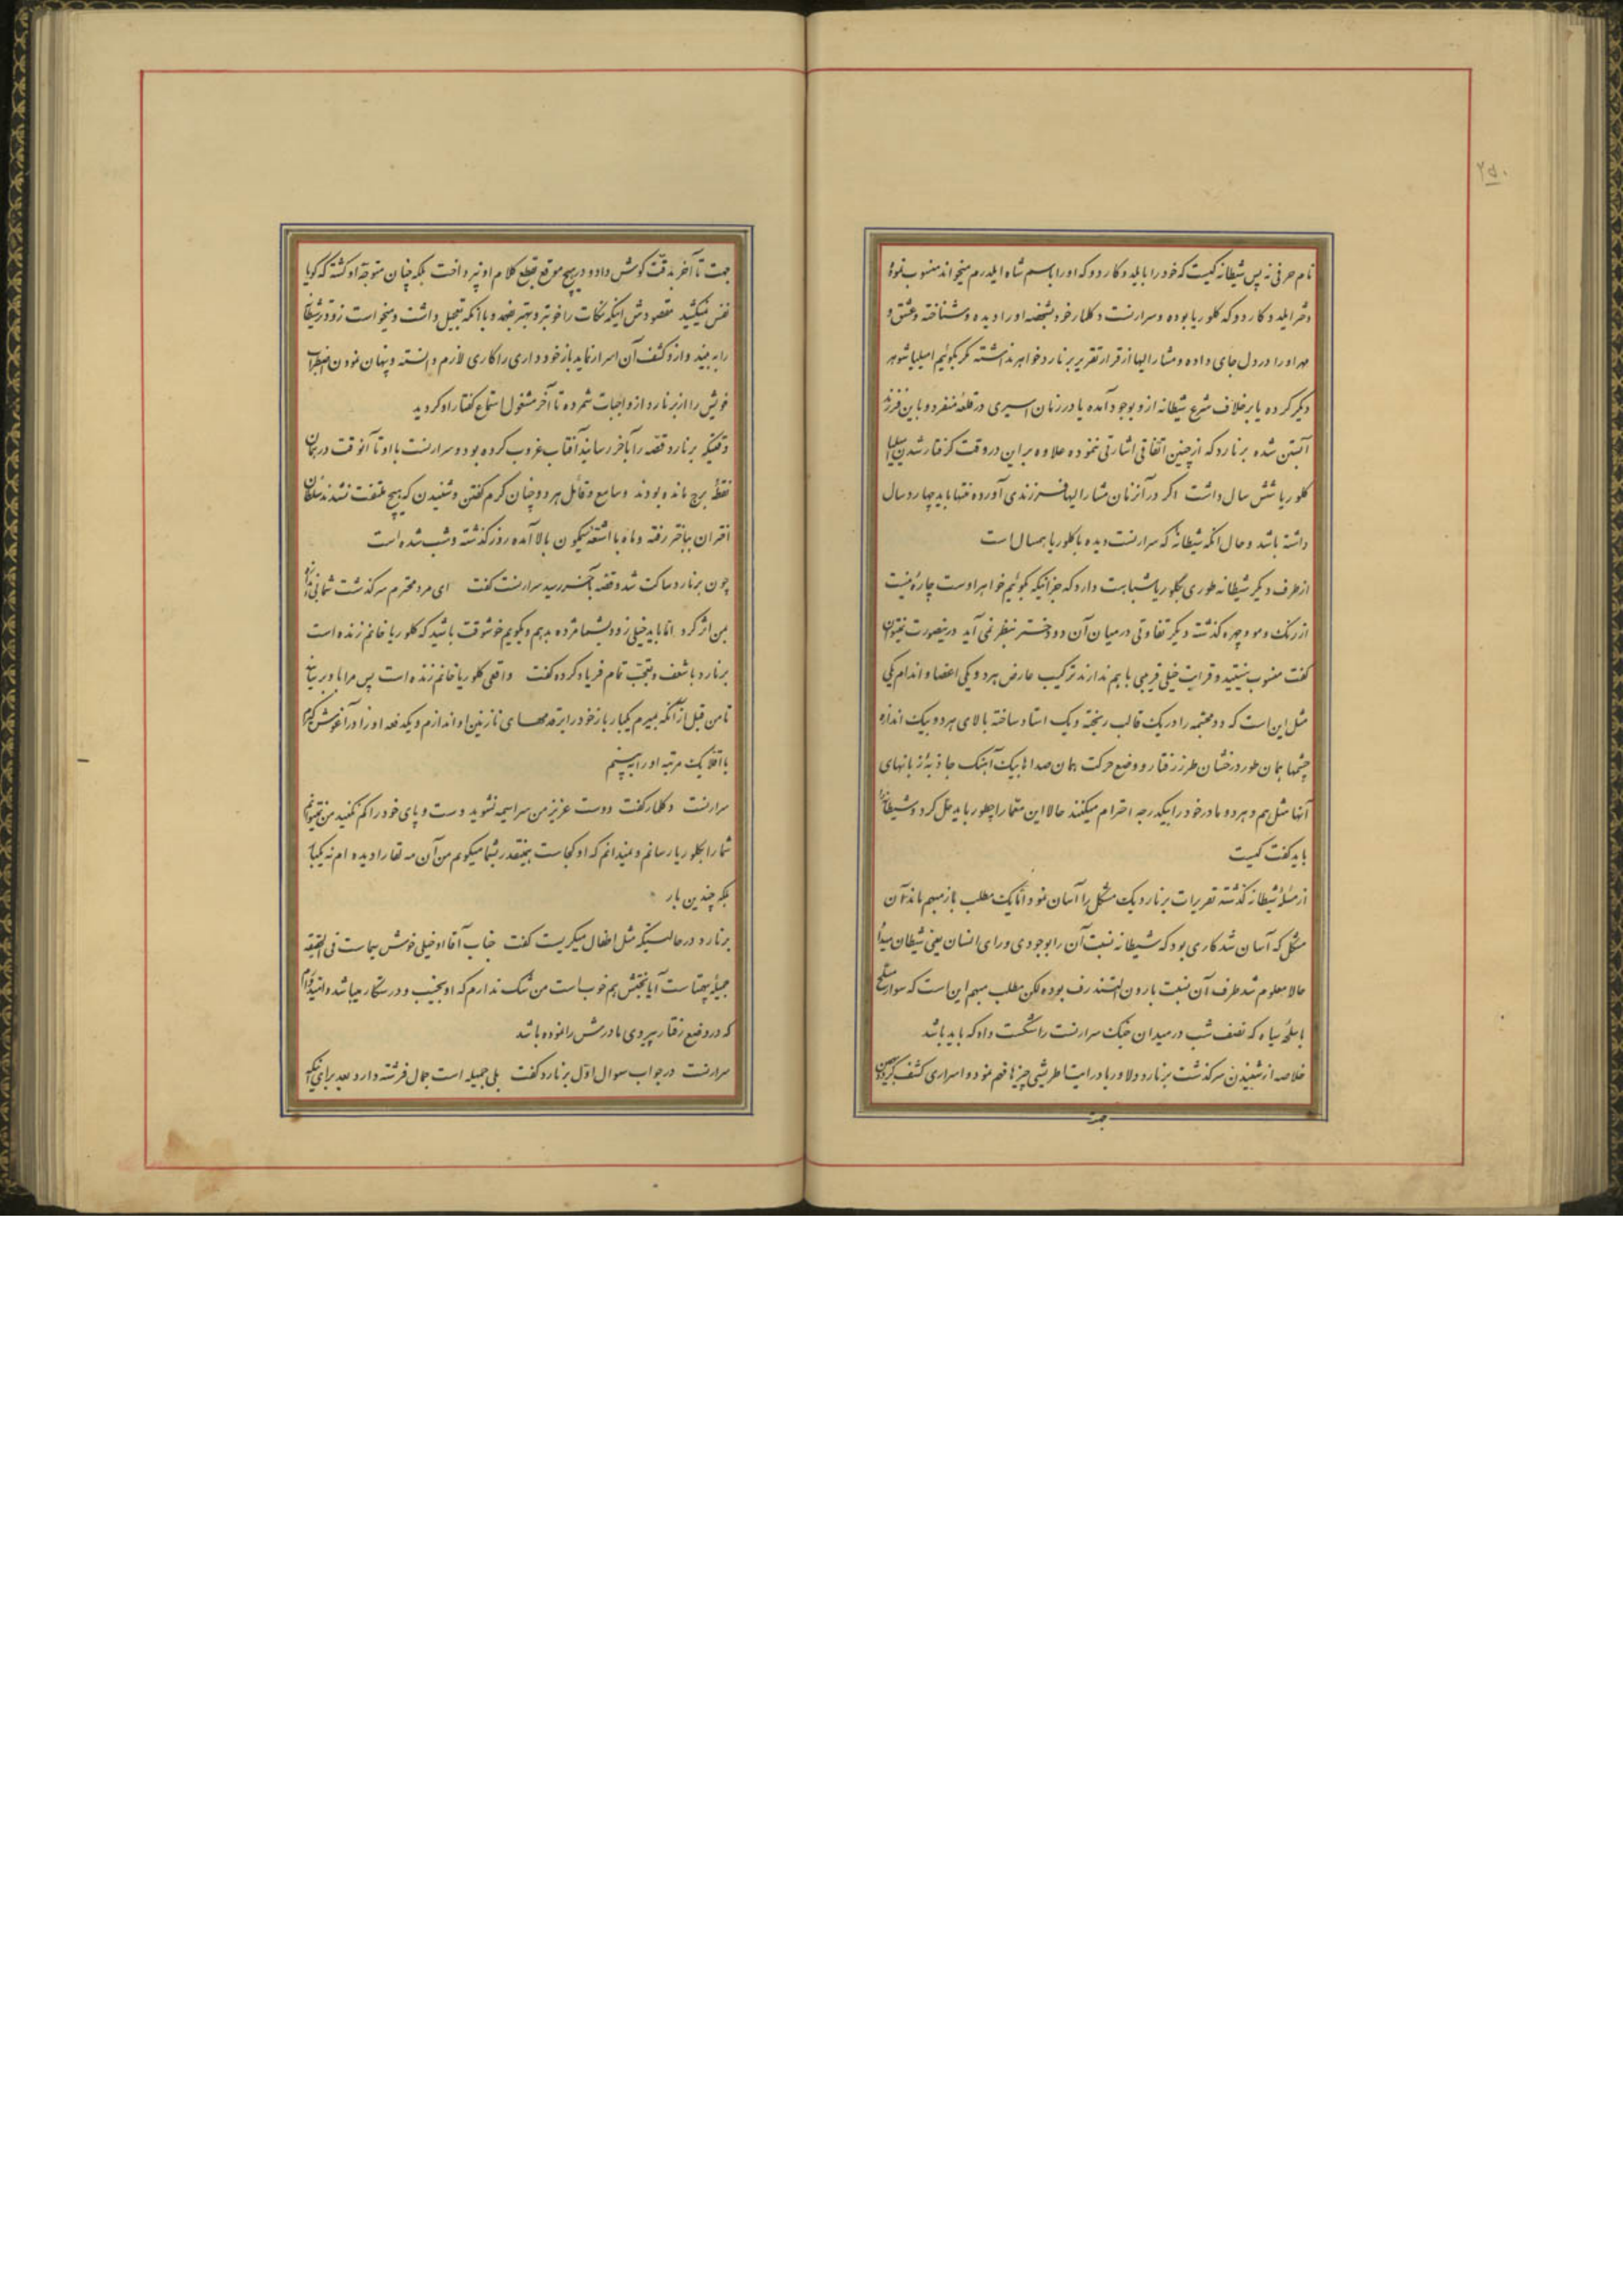 ۲۵۰
نام حرفی نه پس شیطانه کیست که خود را با یلد و کاردو که او را باسم شاه ایلدرم میخوانند منسوب نموده
دختر ایلد و کاردو که کلوریا بوده و سرارنست دکلمار خود بشخصه او را دیده و شناخته و عشق و
مهر او را در دل جای داده و مشارالیها از قرار تقریر برنارد خواهر نداشته مگر بگوئیم امیلیا شوهر
دیگر کرده یا برخلاف شرع شیطانه ازو بوجود آمده یا در زمان اسیری در قلعه منفرد و باین فرزند
آبستن شده برنارد که از چنین اتفاقی اشارتی ننموده علاوه بر این در وقت گرفتار شدن امیلیا
کلوریا شش سال داشت اگر در آنزمان مشارالیها فرزندی آورده منتها باید چهارده سال
داشته باشد و حال آنکه شیطانهٔ که سرارنست دیده با کلوریا همسال است
از طرف دیگر شیطانه طوری بکلوریا شباهت دارد که جز اینکه بگوئیم خواهر اوست چارهٔ نیست
از رنگ و مو و چهره گذشته دیگر تفاوتی در میان آن دو دختر بنظر نمی آید درینصورت نمیتوان
گفت منسوب نیستند و قرابت خیلی قریبی با هم ندارند ترکیب عارض هر دو یکی اعضا و اندام یکی
مثل این است که دو مجسمه را در یک قالب ریخته و یک استاد ساخته بالای هر دو بیک اندازه
چشمها همان طور درخشان طرز رفتار و وضع حرکت همان صداها بیک آهنگ جاذبهٔ زبانهای
آنها مثل هم و هر دو مادر خود را بیکدرجه احترام میکنند حالا این معما را چطور باید حل کرد و شیطانه را
باید گفت کیست
از مسئلهٔ شیطانه گذشته تقریرات برنارد یک مشکل را آسان نمود اما یک مطلب باز مبهم ماند آن
مشکل که آسان شد کاری بود که شیطانه نسبت آن را بوجودی ورای انسان یعنی شیطان میداد
حالا معلوم شد طرف آن نسبت بارون الستندرف بوده لکن مطلب مبهم این است که سوار مسلح
با سلحهٔ سیاه که نصف شب در میدان جنگ سرارنست را شکست داد که باید باشد
خلاصه از شنیدن سرگذشت برنارد دلاور ما در اینتا طریشی چیزها فهم نمود و اسراری کشف کرد
جهت
جهت تا آخر بدقت گوش داد و در هیچ موقع بقطع کلام او نپرداخت بلکه چنان متوجه او گشته که گویا
نفس نمیکشید مقصودش اینکه نکات را خوبتر و بهتر بفهمد و با آنکه تعجیل داشت و میخواست زودتر شیطانه
را به بیند و ازو کشف آن اسرار نماید باز خودداری را کاری لازم دانسته و پنهان نمودن اضطراب
خویش را از برنارد از واجبات شمرده تا آخر مشغول استماع گفتار او گردید
وقتیکه برنارد قصه را بآخر رسانید آفتاب غروب کرده بود و سرارنست با او تا آنوقت در همان
نقطهٔ برج مانده بودند و سامع و قائل هر دو چنان گرم گفتن و شنیدن که هیچ ملتفت نشدند سلطان
اختران بباختر رفته و ماه با اشعهٔ نیلگون بالا آمده روز گذشته و شب شده است
چون برنارد ساکت شد و قصه بآخر رسید سرارنست گفت ای مرد محترم سرگذشت شما بی اندازه
بمن اثر کرد اما باید خیلی زود بشما مژده بدهم و بگویم خوشوقت باشید که کلوریا خانم زنده است
برنارد با شعف و تعجب تمام فریاد کرده گفت واقعی کلوریا خانم زنده است پس مرا باو برسانید
تا من قبل از آنکه بمیرم یکبار باز خود را بقدمهای نازنین او اندازم و یکدفعه او را در آغوش گیرم
یا اقلا یک مرتبه او را ببینم
سرارنست دکلمار گفت دوست عزیز من سراسیمه نشوید دست و پای خود را گم نکنید من نمیتوانم
شما را بکلوریا رسانم و نمیدانم که او کجاست همینقدر بشما میگویم من آن مه لقا را دیده ام نه یکبار
بلکه چندین بار
برنارد در حالتیکه مثل اطفال میگریست گفت جناب آقا او خیلی خوش سیماست فی الحقیقه
جمیلهٔ بیهمتاست آیا بختش هم خوب است من شک ندارم که او نجیب و درستکار میباشد و امیدوارم
که در وضع رفتار پیروی مادرش را نموده باشد
سرارنست در جواب سوال اول برنارد گفت بلی جمیله است جمال فرشته دارد بعد برای اینکه